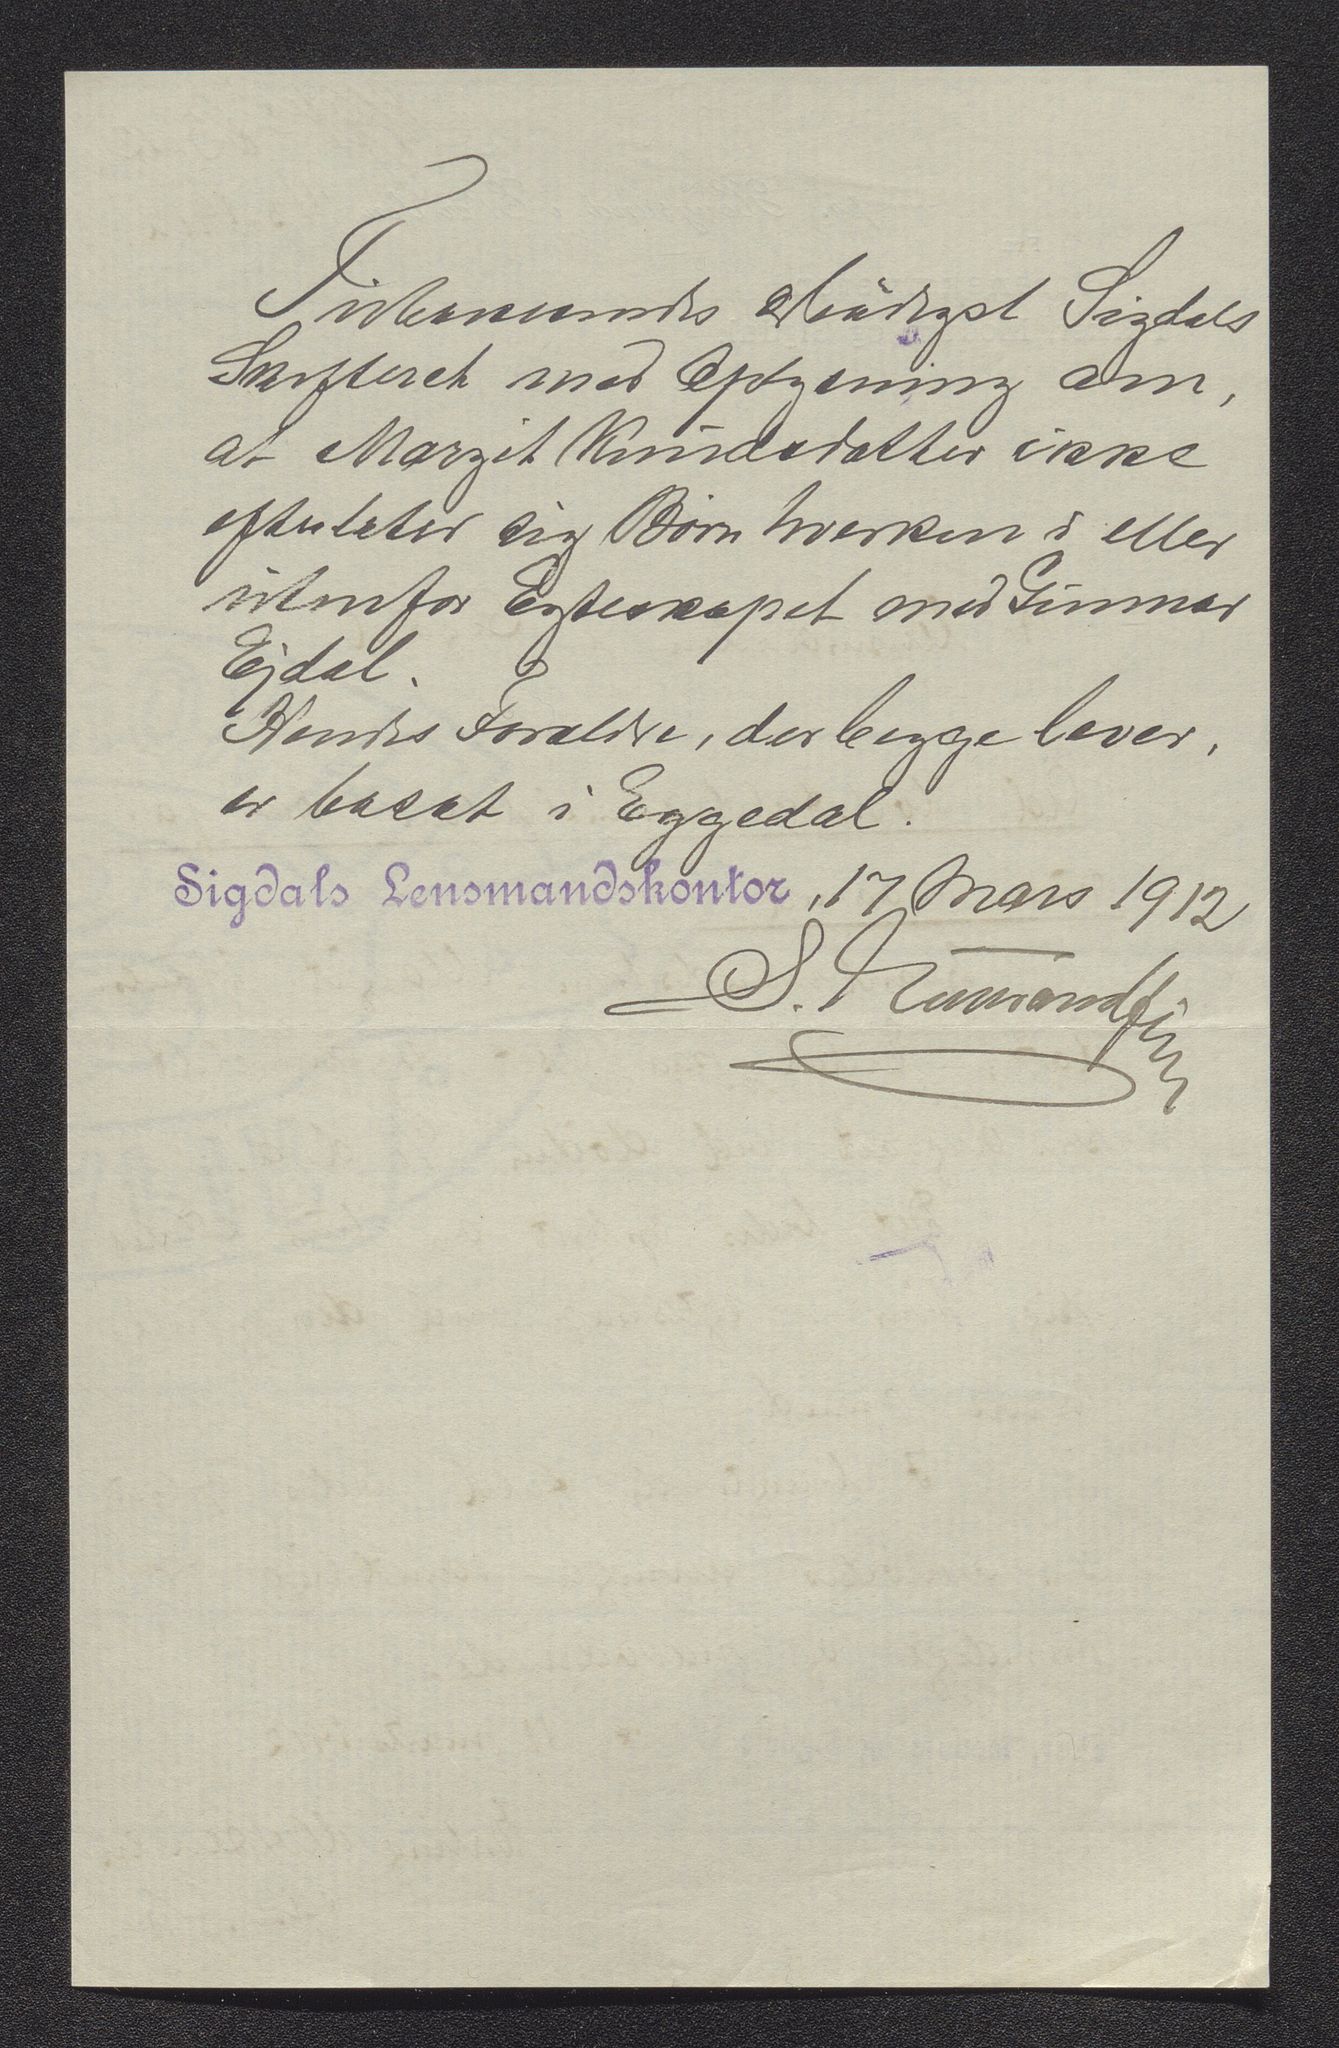 Tilbakesendes ærbødigst Sigdals
Skifteret med Oplysning om,
at Margit Knudsdatter ikke
efterlater sig Børn hverken i eller
utenfor Egteskapet med Gunnar
Ejdal.
Hendes Foræld​re, der begge lever,
er bosat i Eggedal.
Sigdals Lensmandskontor, 17 Mars 1912
S.